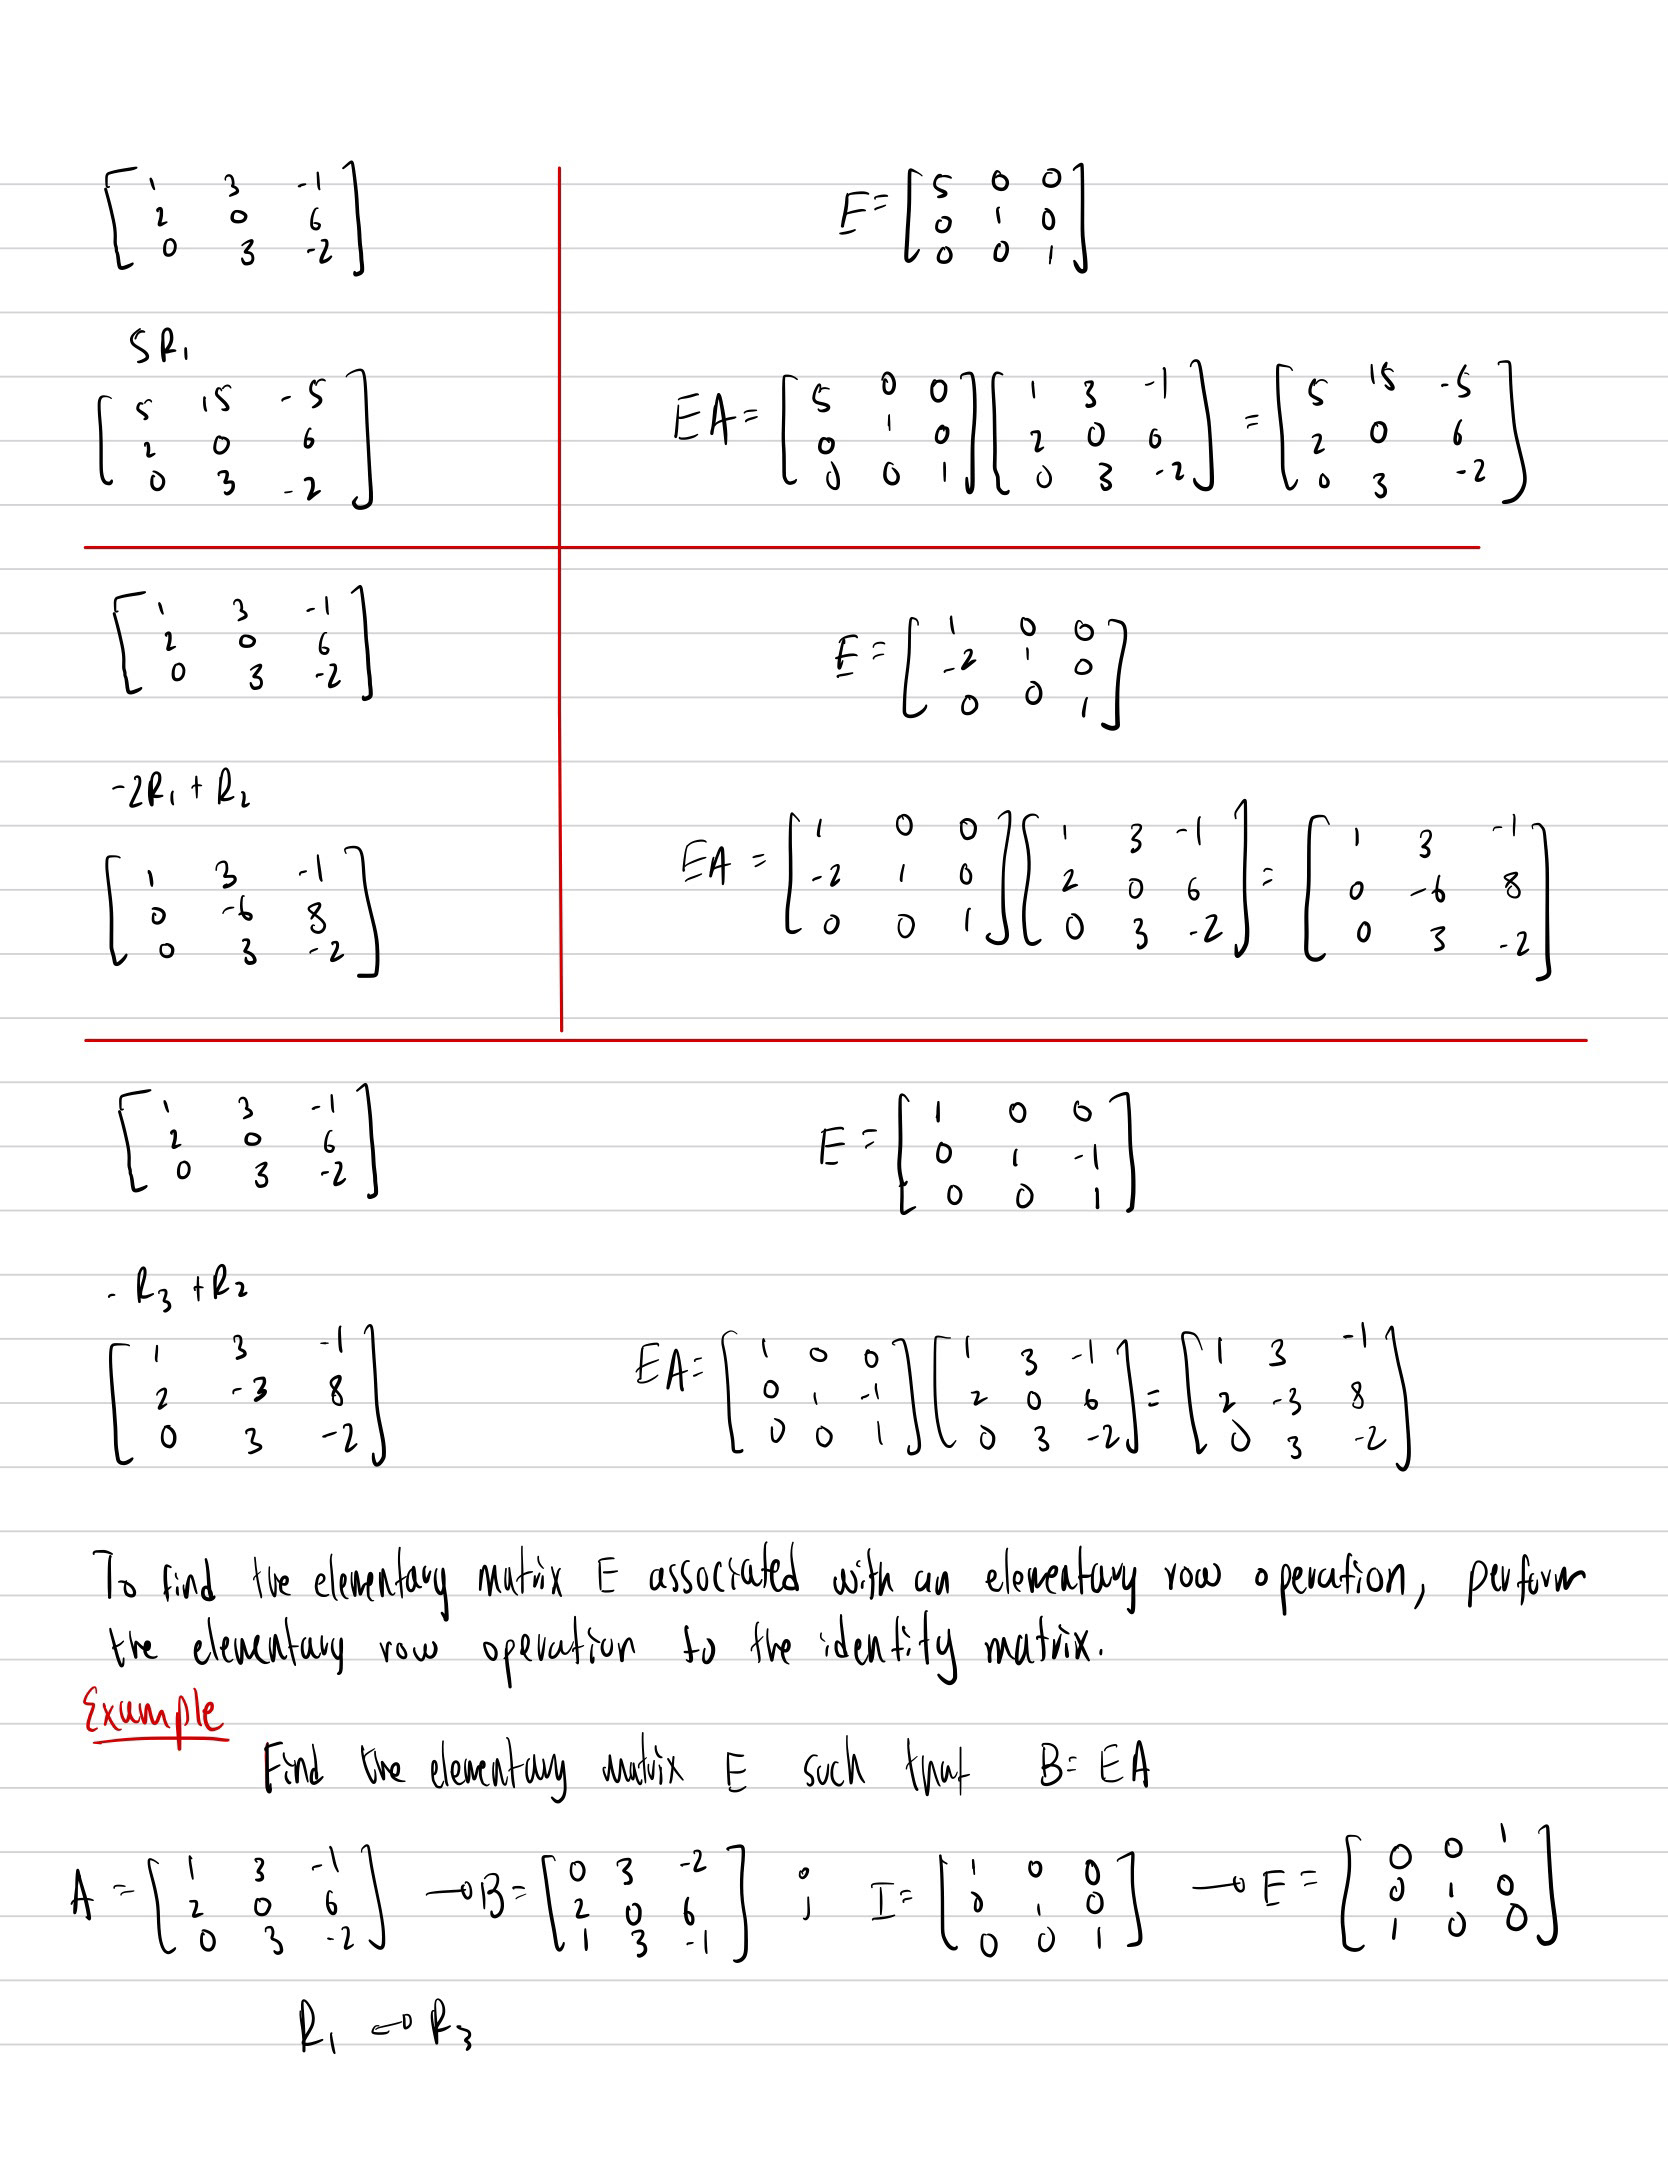 [1 3 -1; 2 0 6; 0 3 -2]
E = [5 0 0; 0 1 0; 0 0 1]
5R₁
[5 15 -5; 2 0 6; 0 3 -2]
EA = [5 0 0; 0 1 0; 0 0 1] [1 3 -1; 2 0 6; 0 3 -2] = [5 15 -5; 2 0 6; 0 3 -2]
[1 3 -1; 2 0 6; 0 3 -2]
E = [1 0 0; -2 1 0; 0 0 1]
-2R₁ + R₂
[1 3 -1; 0 -6 8; 0 3 -2]
EA = [1 0 0; -2 1 0; 0 0 1] [1 3 -1; 2 0 6; 0 3 -2] = [1 3 -1; 0 -6 8; 0 3 -2]
[1 3 -1; 2 0 6; 0 3 -2]
E = [1 0 0; 0 1 -1; 0 0 1]
-R₃ + R₂
[1 3 -1; 2 -3 8; 0 3 -2]
EA = [1 0 0; 0 1 -1; 0 0 1] [1 3 -1; 2 0 6; 0 3 -2] = [1 3 -1; 2 -3 8; 0 3 -2]
To find the elementary matrix E associated with an elementary row operation, perform
the elementary row operation to the identity matrix.
Example
Find the elementary matrix E such that B = EA
A = [1 3 -1; 2 0 6; 0 3 -2] → B = [0 3 -2; 2 0 6; 1 3 -1] ; I = [1 0 0; 0 1 0; 0 0 1] → E = [0 0 1; 0 1 0; 1 0 0]
R₁ ↔ R₃